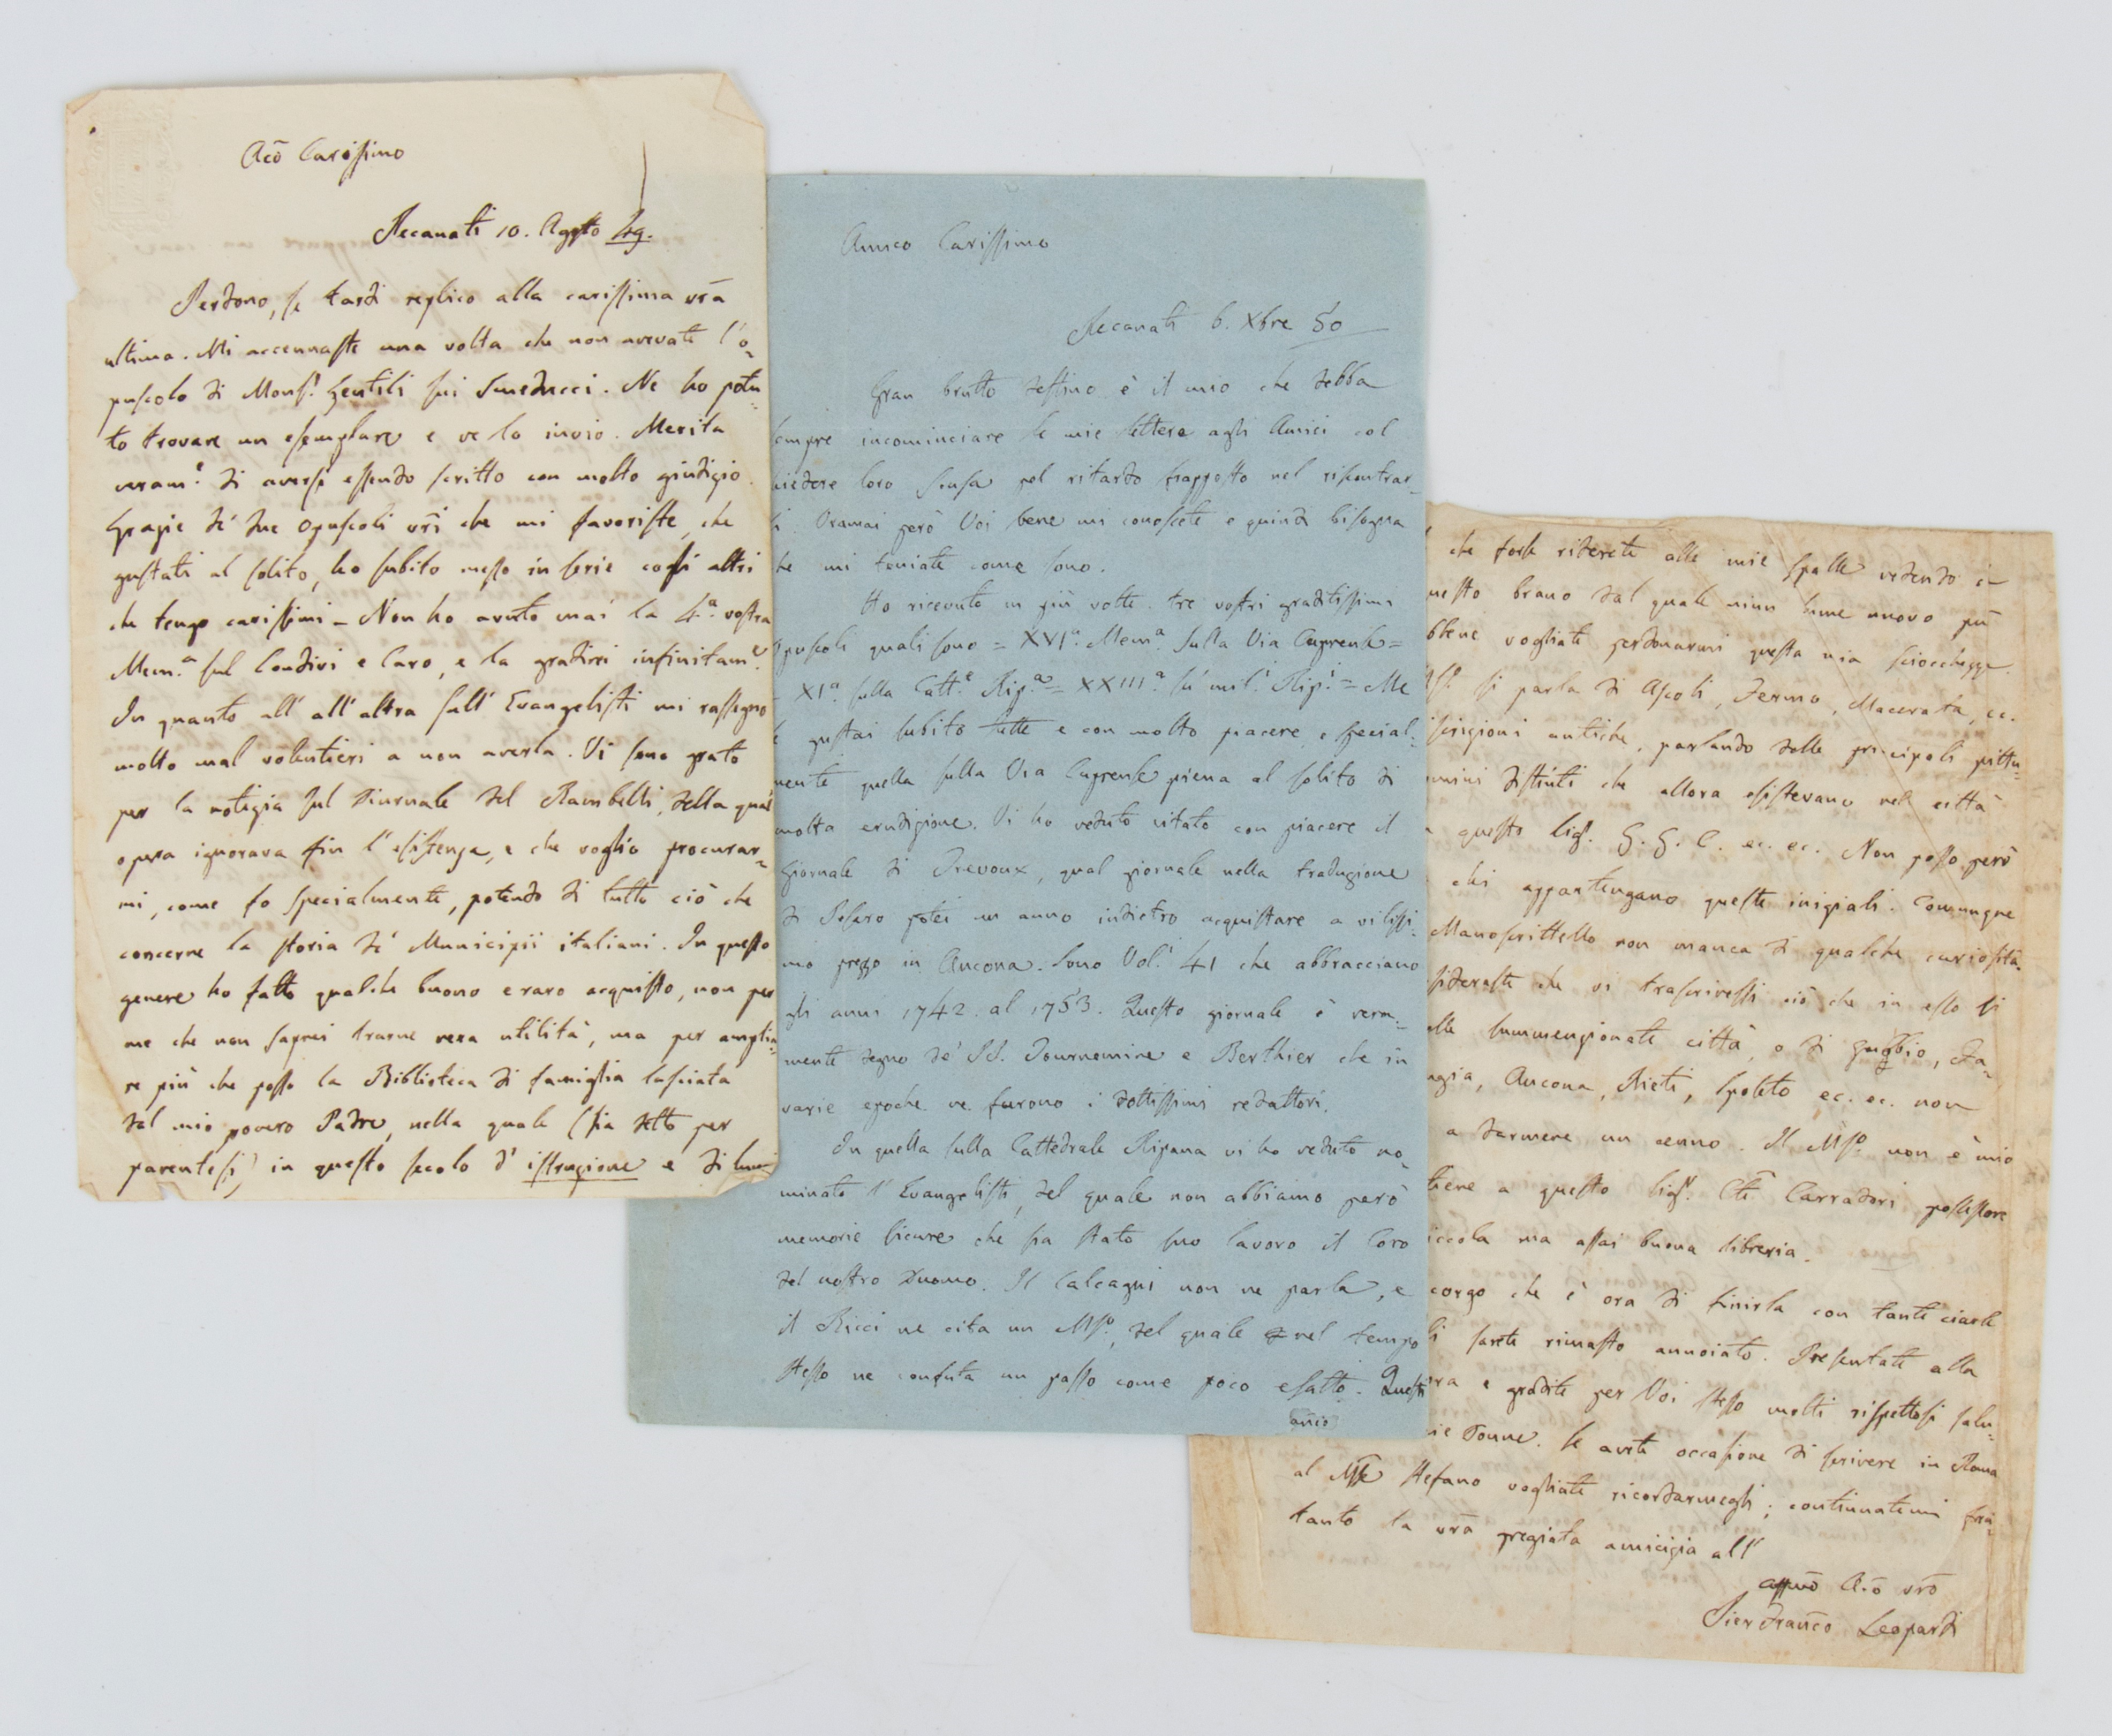 Aco Carissimo
Recanati 10. Agsto 49.
Perdono, se tardi replico alla carissima vra
ultima. Mi accennaste una volta che non avevate l'o=
puscolo di Mons.r Gentili sui Smeducci. Ne ho potu=
to trovare un esemplare e ve lo invio. Merita
veram.e di aversi essendo scritto con molto giudizio.
Grazie de' due opuscoli vri che mi favoriste, che
gustati al solito, ho subito messo in serie cogli altri
che tengo carissimi - Non ho avuto mai la 4.a vostra
Mem.a sul Condivi e Caro, e la gradirei infinitam.e
In quanto all' all'altra sull' Evangelisti mi rassegno
molto mal volentieri a non averla. Vi sono grato
per la notizia sul Giornale del Rambelli, della qual
opera ignorava fin l'esistenza, e che voglio procurar=
mi, come fo specialmente, potendo di tutto ciò che
concerne la storia de' Municipii italiani. In questo
genere ho fatto qualche buono e raro acquisto, non per
me che non saprei trarne vera utilità, ma per amplia=
re più che posso la Biblioteca di famiglia lasciata
dal mio povero Padre, nella quale (sia detto per
parentesi) in questo secolo d' istruzione e di lumi
Amico Carissimo
Recanati 6. Xbre 50
Gran brutto destino è il mio che debba
sempre incominciare le mie lettere agli Amici col
hiedere loro scusa pel ritardo frapposto nel riscontrar=
li. Oramai però Voi bene mi conoscete e quindi bisogna
he mi teniate come sono.
Ho ricevuto in più volte tre vostri graditissimi
Opuscoli quali sono = XVI.a Mem.a sulla Via Cuprense =
XI.a sulla Catt.e Rip.a = XXIII.a su' mil.i Rip.i = Me
gustai subito tutte e con molto piacere, e special=
mente quella sulla Via Cuprense piena al solito di
molta erudizione. Vi ho veduto citato con piacere il
Giornale di Trevoux, qual giornale nella traduzione
di Pesaro potei un anno indietro acquistare a vilissi=
mo prezzo in Ancona. Sono Vol.i 41 che abbracciano
gli anni 1742. al 1753. Questo giornale è vera=
mente degno de' PP. Tournemine e Berthier che in
varie epoche ne furono i dottissimi redattori.
In quella sulla Cattedrale Ripana vi ho veduto no=
minato l' Evangelisti, del quale non abbiamo però
memorie sicure che sia stato suo lavoro il Coro
del nostro Duomo. Il Calcagni non ne parla, e
il Ricci ne cita un Mso, del quale nel tempo
stesso ne confuta un passo come poco esatto. Questi
anzio
che forse riderete alle mie spalle vedendo
uesto brano dal quale niun lume nuovo
bbene vogliate perdonarmi questa mia sciocchezza.
si parla di Ascoli, Fermo, Macerata, ec.
scrizioni antiche, parlando delle principali pittu=
omini distinti che allora esistevano nel città
questo Sig.r G. G. C. ec. ec. Non posso però
chi appartengano queste iniziali. Comunque
Manoscrittello non manca di qualche curiosità.
sideraste che vi trascrivessi ciò che in esso si
elle summenzionate città, o di Gubbio, Fa=
ugia, Ancona, Rieti, Spoleto ec. ec. non
a darmene un cenno. Il Mso non è mio
tiene a questo Sig.r Cte Carradori possessore
iccola ma assai buona libreria.
corgo che è ora di finirla con tante ciarle
sarete rimasto annoiato. Presentate alla
ra e gradite per Voi stesso molti rispettosi salu=
ie donne. Se avete occasione di scrivere in Roma
al Mse Stefano vogliate ricordarmegli; continuatemi frat=
tanto la vra pregiata amicizia all'
affmo Aco vro
Pier Franco Leopardi